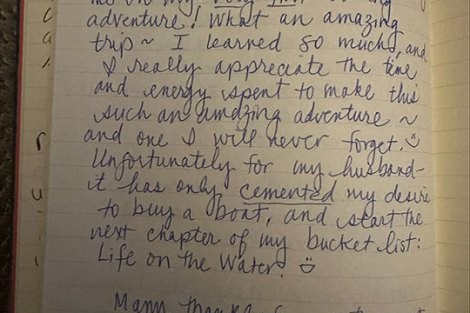 me on my very first
adventure! What an amazing
trip ~ I learned so much, and
I really appreciate the time
and energy spent to make this
such an amazing adventure ~
and one I will never forget. ☺
Unfortunately for my husband-
it has only cemented my desire
to buy a boat, and start the
next chapter of my bucket list:
Life on the Water! ☺
Many thanks